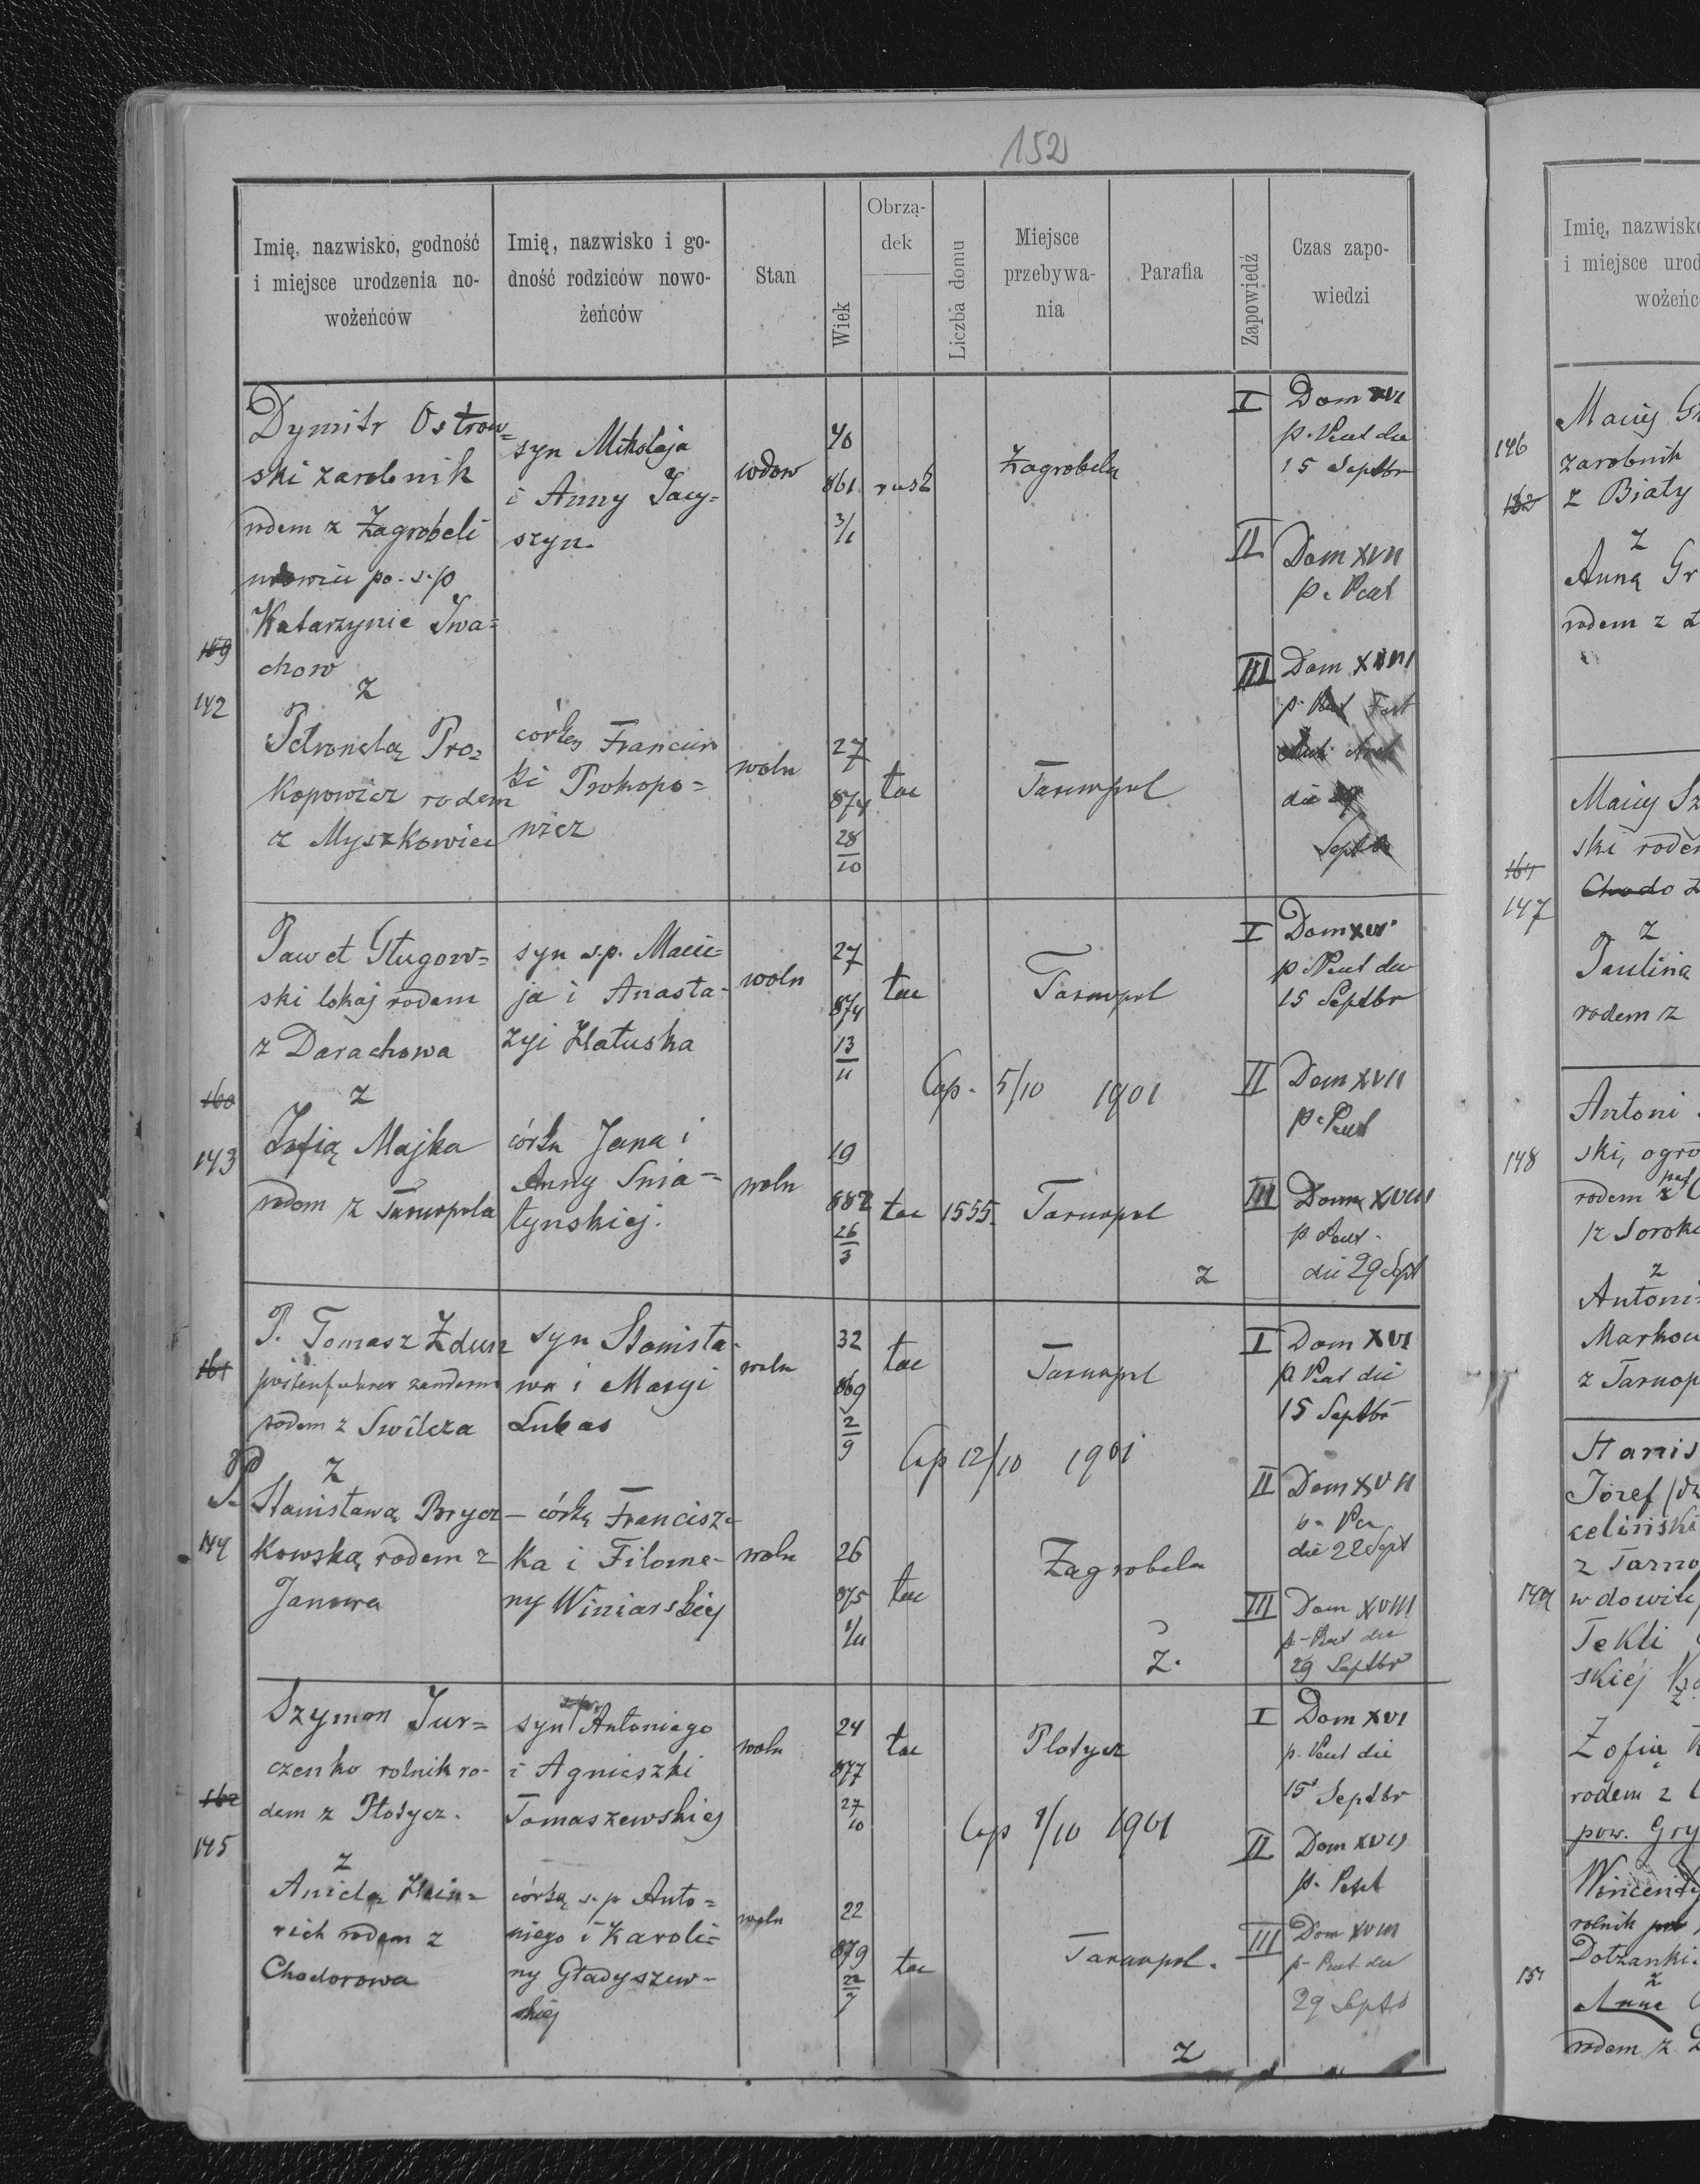 152
Imię, nazwisko, godność
i miejsce urodzenia no-
wożeńców
Imię, nazwisko i go-
dność rodziców nowo-
żeńców
Stan
Wiek
Obrzą-
dek
Liczba domu
Miejsce
przebywa-
nia
Parafia
Zapowiedź
Czas zapo-
wiedzi
159
142
Dymitr Ostrow=
ski zarobnik
rodem z Zagrobeli
wdowiec po s.p
Katarzynie Iwa=
chow
z
Petronelą Pro=
kopowicz rodem
z Myszkowiec
syn Mikołaja
i Anny Jacy=
szyn.
córką Francisz
ki Prokopo=
wicz
wdow
woln
40
861
3/1
27
874
28
10
rusk
łac
Zagrobela
Tarnopol
I Dom XVI
p. Pent die
15 Septbr
II Dom XVII
p. Pent
III Dom XVIII
p. Fest
die 29
Septbr
160
143
Paweł Gługow=
ski lokaj rodem
z Darachowa
z
Zofią Majka
rodem z Tarnopola
syn s.p. Macie=
ja i Anasta-
zyi Hałuska
córką Jana i
Anny Snia=
tynskiej.
woln
woln
27
874
13
11
19
882
26
3
łac
łac
1555.
Tarnopol
Cop. 5/10 1901
Tarnopol
z
I Dom XVI
p. Pent die
15 Septbr
II Dom XVII
p. Pent
III Dom XVIII
p Pent.
die 29 Sept
161
144
P. Tomasz Zdun
rodem z Swilcza
z
P.
Stanisławą Brycz-
kowską rodem z
Janowa
syn Stanisła-
wa i Maryi
Lukas
córką Francisz-
ka i Filome-
ny Winiarskiej
woln
woln
32
869
2
9
26
875
1/11
łac
łac
Tarnopol
Cop 12/10 1901
Zagrobela
z.
I Dom XVI
p Pent die
15 Septbr
II Dom XVII
die 22 Sept
III Dom XVIII
p. Pent die
29 Septbr
162
145
Szymon Jur=
czenko rolnik ro-
dem z Płotycz.
z
Anielą Hein=
rich rodem z
Chodorowa
s.p.
syn Antoniego
i Agnieszki
Tomaszewskiej
córką s.p Anto=
niego i Karoli=
ny Gładyszew-
skiej
woln
woln
24
877
27
10
22
879
22
7
łac
łac
Płotycz
Cop 8/10 1901
Tarnopol.
z
I Dom XVI
p. Pent die
15 Septbr
II Dom XVII
p. Pent
III Dom XVIII
p. Pent die
29 Septb
Imię, nazwisko
i miejsce urod
wożeńc
146
162
Maciej Gr
zarobnik
z Biały
z
Anną Gr
rodem z
164
147
Maciej Sz
ski rodem
z
Paulina
rodem z
148
Antoni
ski, ogro
rodem z
z
Antoni
Markow
z Tarnop
149
Stanis
Józef
celiński
z Tarno
wdowiec
Tekli
skiej
z
Zofią
rodem z
pow. Gry
151
Wincenty
rolnik
z
Anna
rodem z